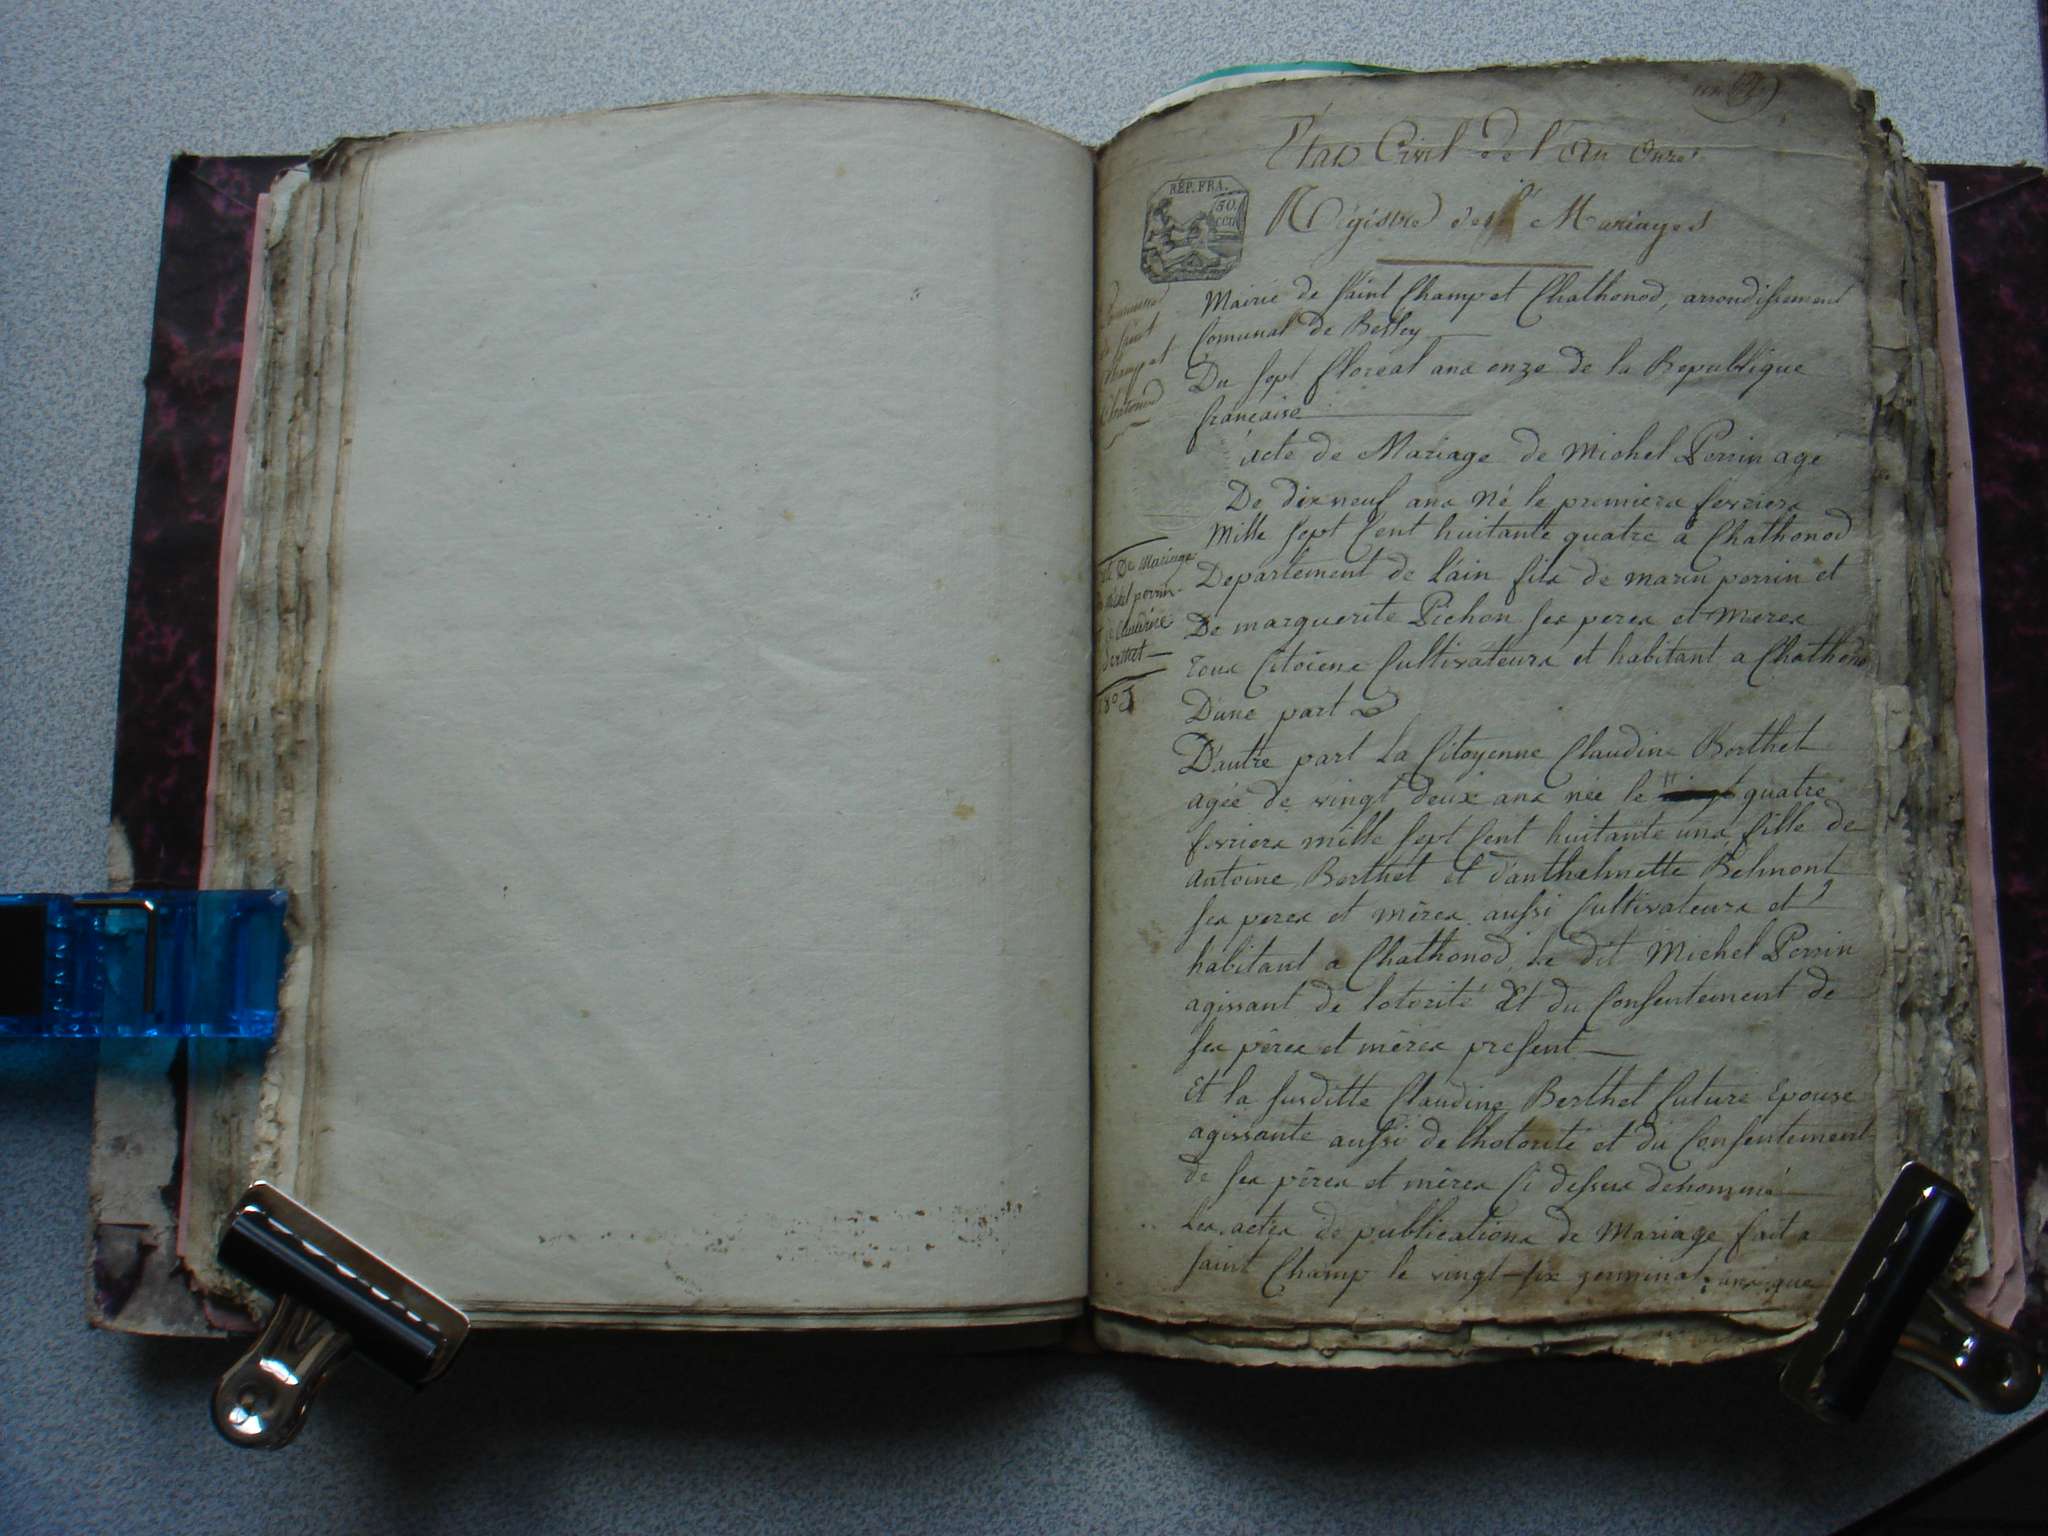 Etat Civil de l'An Onze
Régistre des Mariages
RÉP. FRA.
50
Commune
de Saint
Champ et
Chatonod
Mairie de Saint Champ et Chathonod, arrondissement
Comunal de Belley
Du sept floreal ans onze de la Republique
francaise
acte de Mariage de Michel Perrin agé
De dix neuf ans né le premiers fevriers
Mille sept Cent huitante quatre à Chathonod
Departement de L'ain fils de marin perrin et
De marguerite Pichon ses peres et meres
Tous Citoiens Cultivateurs et habitant a Chathonod
D'une part
acte De Mariage
de Michel perrin
et Claudine
berthet
1803
D'autre part La Citoyenne Claudine Berthet
agée de vingt deux ans née le quatre
fevriers mille sept Cent huitante uns fille de
antoine Berthet et d'anthelmette Belmont
ses peres et mères aussi Cultivateurs et
habitant a Chathonod, Le dit Michel Perrin
agissant de lotorité Et du Consentement de
ses pères et mères present
Et la susditte Claudine Berthet future Epouse
agissante aussi de lhotorité et du Consentement
de ses pères et mères Ci dessus denominé
Les actes de publications de Mariage fait a
saint Champ le vingt-six germinal, ans que